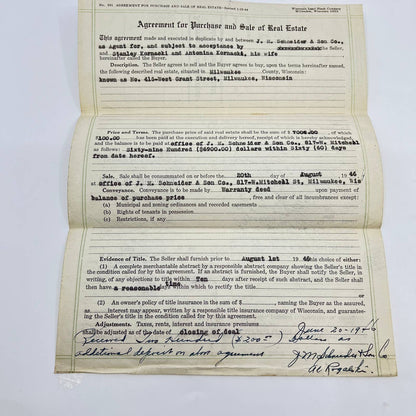 No. 501 AGREEMENT FOR PURCHASE AND SALE OF REAL ESTATE
Wisconsin Legal Blank Company
Milwaukee, Wisconsin
Agreement for Purchase and Sale of Real Estate
This agreement made and executed in duplicate by and between J. M. Schneider & Son Co.,
as Agent for, and subject to acceptance by the Seller,
and Stanley Kornacki and Antonina Kornacki, his wife
the Buyer.
Description. The Seller agrees to sell and the Buyer agrees to buy, upon the terms hereinafter named,
the following described real estate, situated in Milwaukee County, Wisconsin:
known as No. 416-West Grant Street, Milwaukee, Wisconsin
Price and Terms. The purchase price of said real estate shall be the sum of $ 7000.00, of which
$100.00 has been paid at the execution and delivery hereof, receipt of which is hereby acknowledged,
and the balance is to be paid at office of J. M. Schneider & Son Co., 817-W. Mitchell
as follows: Sixty-nine Hundred ($6900.00) dollars within Sixty (60) days
from date hereof.
Sale. Sale shall be consummated on or before the 20th day of August 1946
at office of J. M. Schneider & Son Co., 817-W. Mitchell St, Milwaukee, Wis
Conveyance. Conveyance is to be made by Warranty deed upon payment of
balance of purchase price, free and clear of all incumbrances except:
(a) Municipal and zoning ordinances and recorded easements
(b) Rights of tenants in possession
(c) Restrictions, if any
Evidence of Title. The Seller shall furnish prior to August 1st 1946 this choice of either:
(1) A complete merchantable abstract by a responsible abstract company showing the Seller's title in
the condition called for by this agreement. If an abstract is furnished, the Buyer shall notify the Seller, in
writing, of any objections to title within Ten days after receipt of such abstract, and the Seller shall
then have a reasonable time days within which to rectify the title.
or
(2) An owner's policy of title insurance in the sum of $ , naming the Buyer as the assured,
as interest may appear, written by a responsible title insurance company of Wisconsin, and guarantee-
ing the Seller's title in the condition called for by this agreement.
Adjustments. Taxes, rents, interest and insurance premiums
shall be adjusted as of the date of closing of deal
June 20-1946
Received Two Hundred ($200.00) Dollars as
additional deposit on above agreement
J. M. Schneider & Son Co